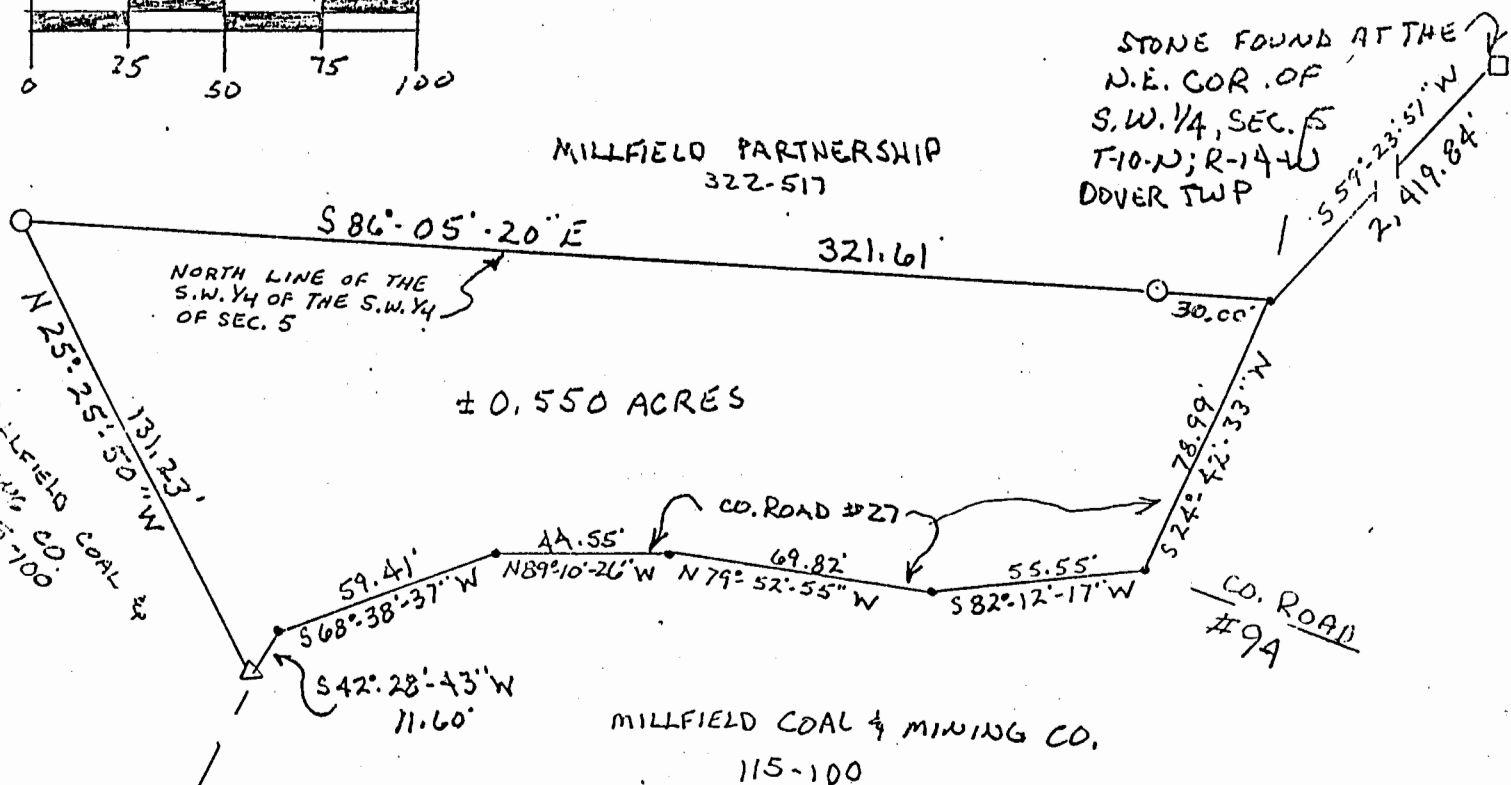 0 25 50 75 100
STONE FOUND AT THE
N.E. COR. OF
S.W. 1/4, SEC. 5
T-10-N; R-14-W
DOVER TWP
S 59°-23'-57" W
2,419.84'
MILLFIELD PARTNERSHIP
322-517
S 86°-05'-20" E
321.61'
30.00'
NORTH LINE OF THE
S.W. 1/4 OF THE S.W. 1/4
OF SEC. 5
N 25°-25'-50" W
131.23'
± 0.550 ACRES
78.99'
S 24°-42'-33" W
COAL &
CO.
-100
CO. ROAD #27
59.41'
S 68°-38'-37" W
44.55'
N 89°-10'-26" W
69.82'
N 79°-52'-55" W
55.55'
S 82°-12'-17" W
CO. ROAD
#9A
S 42°-28'-43" W
11.60'
MILLFIELD COAL & MINING CO.
115-100